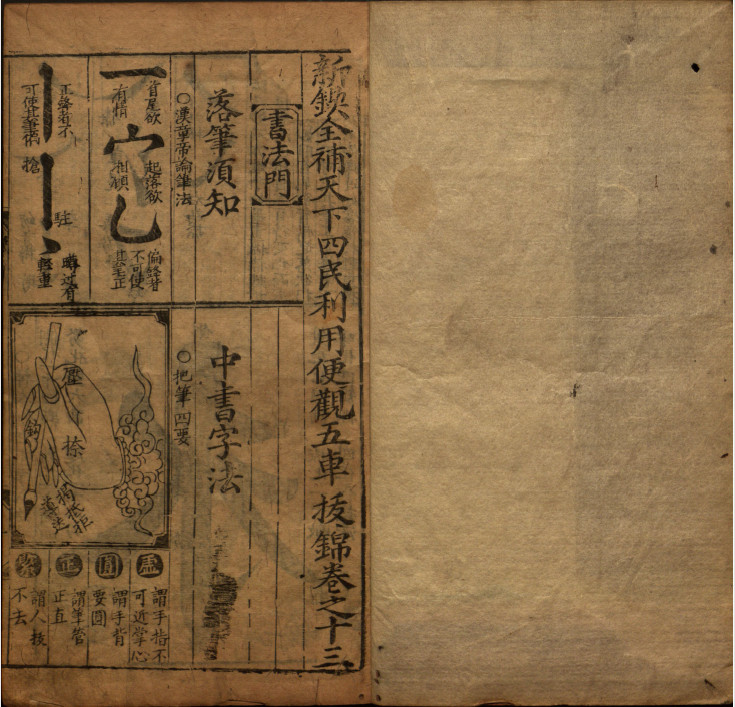 新鍥全補天下四民利用便觀五車拔錦卷之十三
書法門
落筆須知
○漢章帝論筆法
首尾欲
有情
起落欲
相顧
偏鋒者
不可使
其至正
正鋒者不
可使其
駐
鎗
蹲过有
輕重
中書字法
○把筆四要
壓
鈎
捺
揭
抵
拒
導
送
虛
謂手指不
可近掌心
圓
謂手背
要圓
正
謂筆管
正直
緊
謂人技
不去